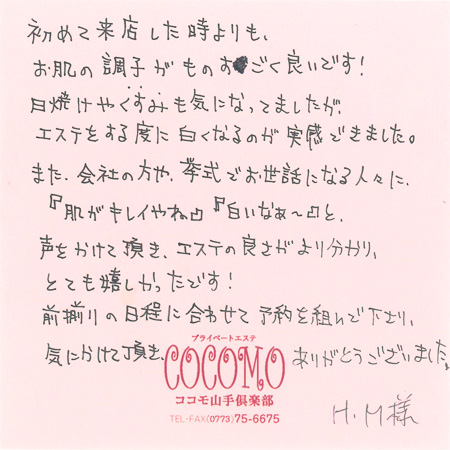 初めて来店した時よりも、
お肌の調子がものすごく良いです!
日焼けやくすみも気になってましたが、
エステをする度に白くなるのが実感できました。
また、会社の方や、挙式でお世話になる人々に、
『肌がキレイやね』『白いなぁ〜』と、
声をかけて頂き、エステの良さがより分かり、
とても嬉しかったです!
前揃りの日程に合わせて予約を組んで下さり、
気にかけて頂き、ありがとうございました。
プライベートエステ
COCOMO
ココモ山手倶楽部
TEL・FAX(0773)75-6675
H.M様